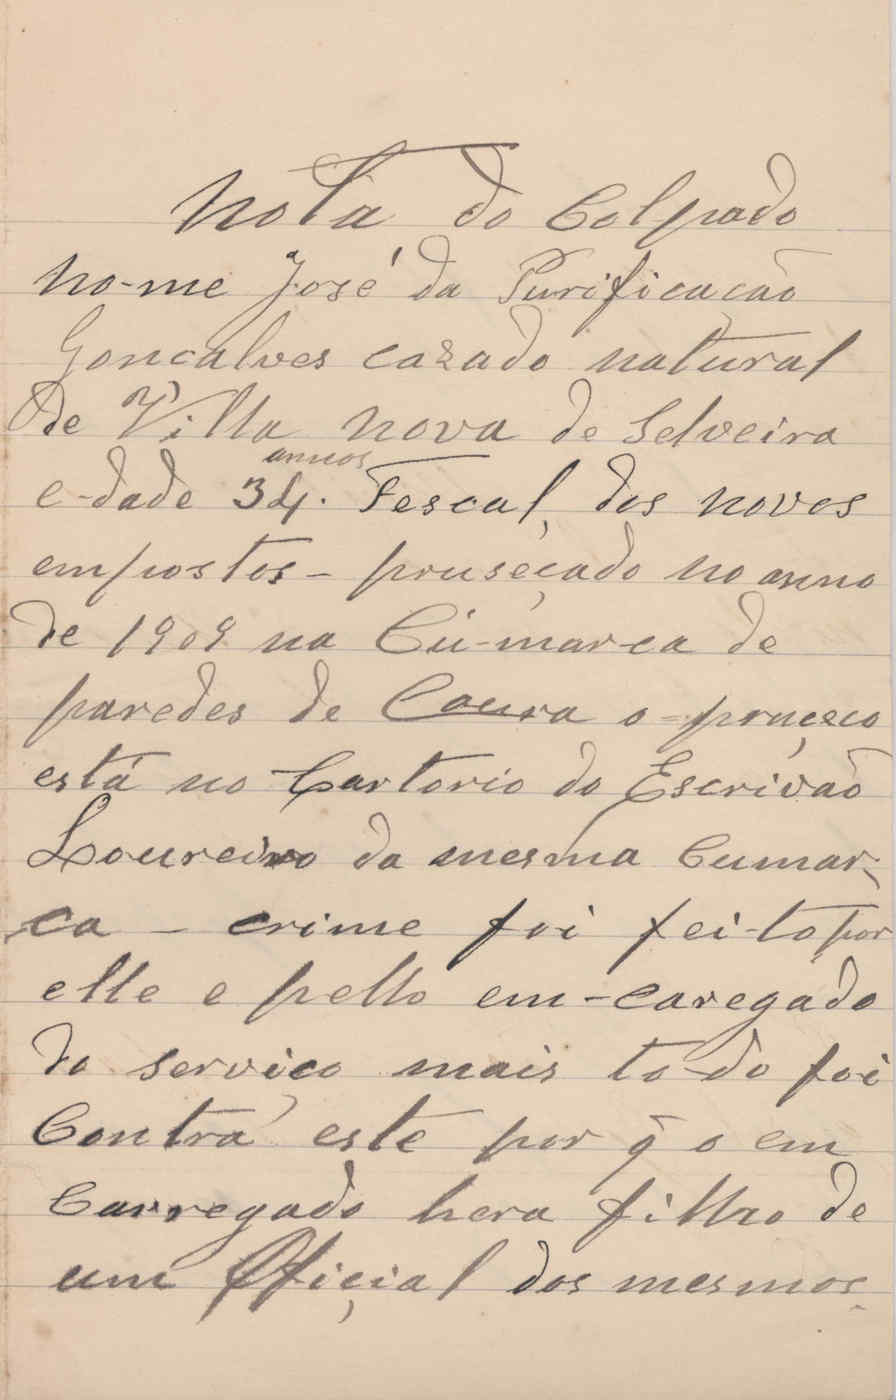 Nota do Colpado
no-me José da Purificação
Gonçalves cazado natural
de Villa Nova de Selveira
e-dade 34 annos. Fescal, dos novos
empostos - pruseçado no anno
de 1909 na Cu-mar-ca de
paredes de Coura o-pruçeco
está no Cartorio do Escrivão
Loureiro da mesma Cumar-
ca - crime foi fei-to por
elle e pello em-caregado
do serviço mais to-do foi
Contra este por q̃ o em
Carregado hera filho de
um Offiçial dos mesmos